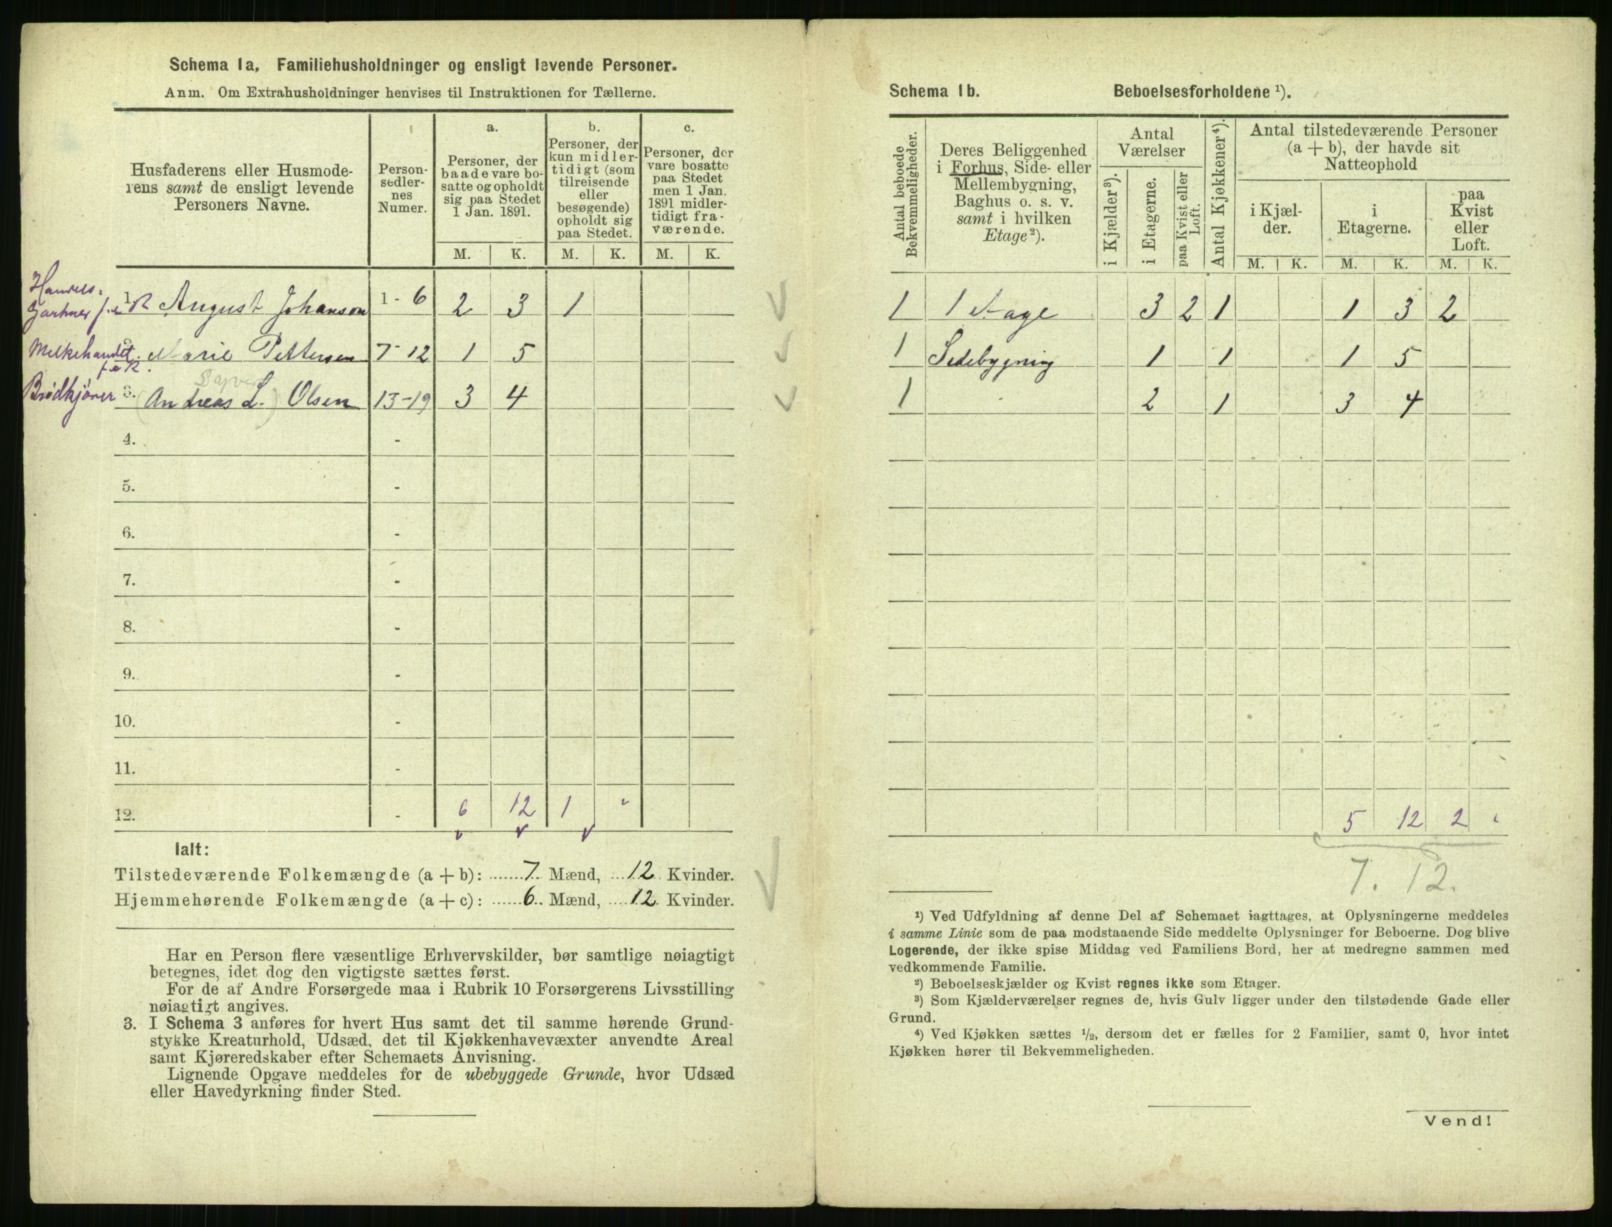 Schema 1a. Familiehusholdninger og ensligt levende Personer.
Anm. Om Extrahusholdninger henvises til Instruktionen for Tællerne.
Husfaderens eller Husmode-
rens samt de ensligt levende
Personers Navne.
Person-
sedler-
nes
Numer.
a.
Personer, der
baade vare bo-
satte og opholdt
sig paa Stedet
1 Jan. 1891.
b.
Personer, der
kun midler-
tidigt (som
tilreisende
eller
besøgende)
opholdt sig
paa Stedet.
c.
Personer, der
vare bosatte
paa Stedet
men 1 Jan.
1891 midler-
tidigt fra-
værende.
M. K. M. K. M. K.
Handels-
Gartner f.e.R
1. August Johanson 1-6 2 3 1
Melkehandel
f.e.R.
2. Marie Pettersen 7-12 1 5
Brødkjører 3. (Andreas L.) Olsen 13-19 3 4
4. -
5. -
6. -
7. -
8. -
9. -
10. -
11. -
12. - 6 12 1 "
Ialt:
Tilstedeværende Folkemængde (a + b): 7 Mænd, 12 Kvinder.
Hjemmehørende Folkemængde (a + c): 6 Mænd, 12 Kvinder.
Har en Person flere væsentlige Erhvervskilder, bør samtlige nøiagtigt
betegnes, idet dog den vigtigste sættes først.
For de af Andre Forsørgede maa i Rubrik 10 Forsørgerens Livsstilling
nøiagtigt angives.
3. I Schema 3 anføres for hvert Hus samt det til samme hørende Grund-
stykke Kreaturhold, Udsæd, det til Kjøkkenhavevæxter anvendte Areal
samt Kjøreredskaber efter Schemaets Anvisning.
Lignende Opgave meddeles for de ubebyggede Grunde, hvor Udsæd
eller Havedyrkning finder Sted.
Schema 1b. Beboelsesforholdene ¹).
Antal beboede
Bekvemmeligheder.
Deres Beliggenhed
i Forhus, Side- eller
Mellembygning,
Baghus o. s. v.
samt i hvilken
Etage²).
Antal
Værelser
i Kjælder³).
i Etagerne.
paa Kvist eller
Loft.
Antal Kjøkkener⁴).
Antal tilstedeværende Personer
(a + b), der havde sit
Natteophold
i Kjæl-
der.
i
Etagerne.
paa
Kvist
eller
Loft.
M. K. M. K. M. K.
1 1 Etage 3 2 1 1 3 2
1 Sidebygning 1 1 1 5
1 2 1 3 4
5 12 2 "
7. 12.
¹) Ved Udfyldning af denne Del af Schemaet iagttages, at Oplysningerne meddeles
i samme Linie som de paa modstaaende Side meddelte Oplysninger for Beboerne. Dog blive
Logerende, der ikke spise Middag ved Familiens Bord, her at medregne sammen med
vedkommende Familie.
²) Beboelseskjælder og Kvist regnes ikke som Etager.
³) Som Kjælderværelser regnes de, hvis Gulv ligger under den tilstødende Gade eller
Grund.
⁴) Ved Kjøkken sættes ½, dersom det er fælles for 2 Familier, samt 0, hvor intet
Kjøkken hører til Bekvemmeligheden.
Vend!